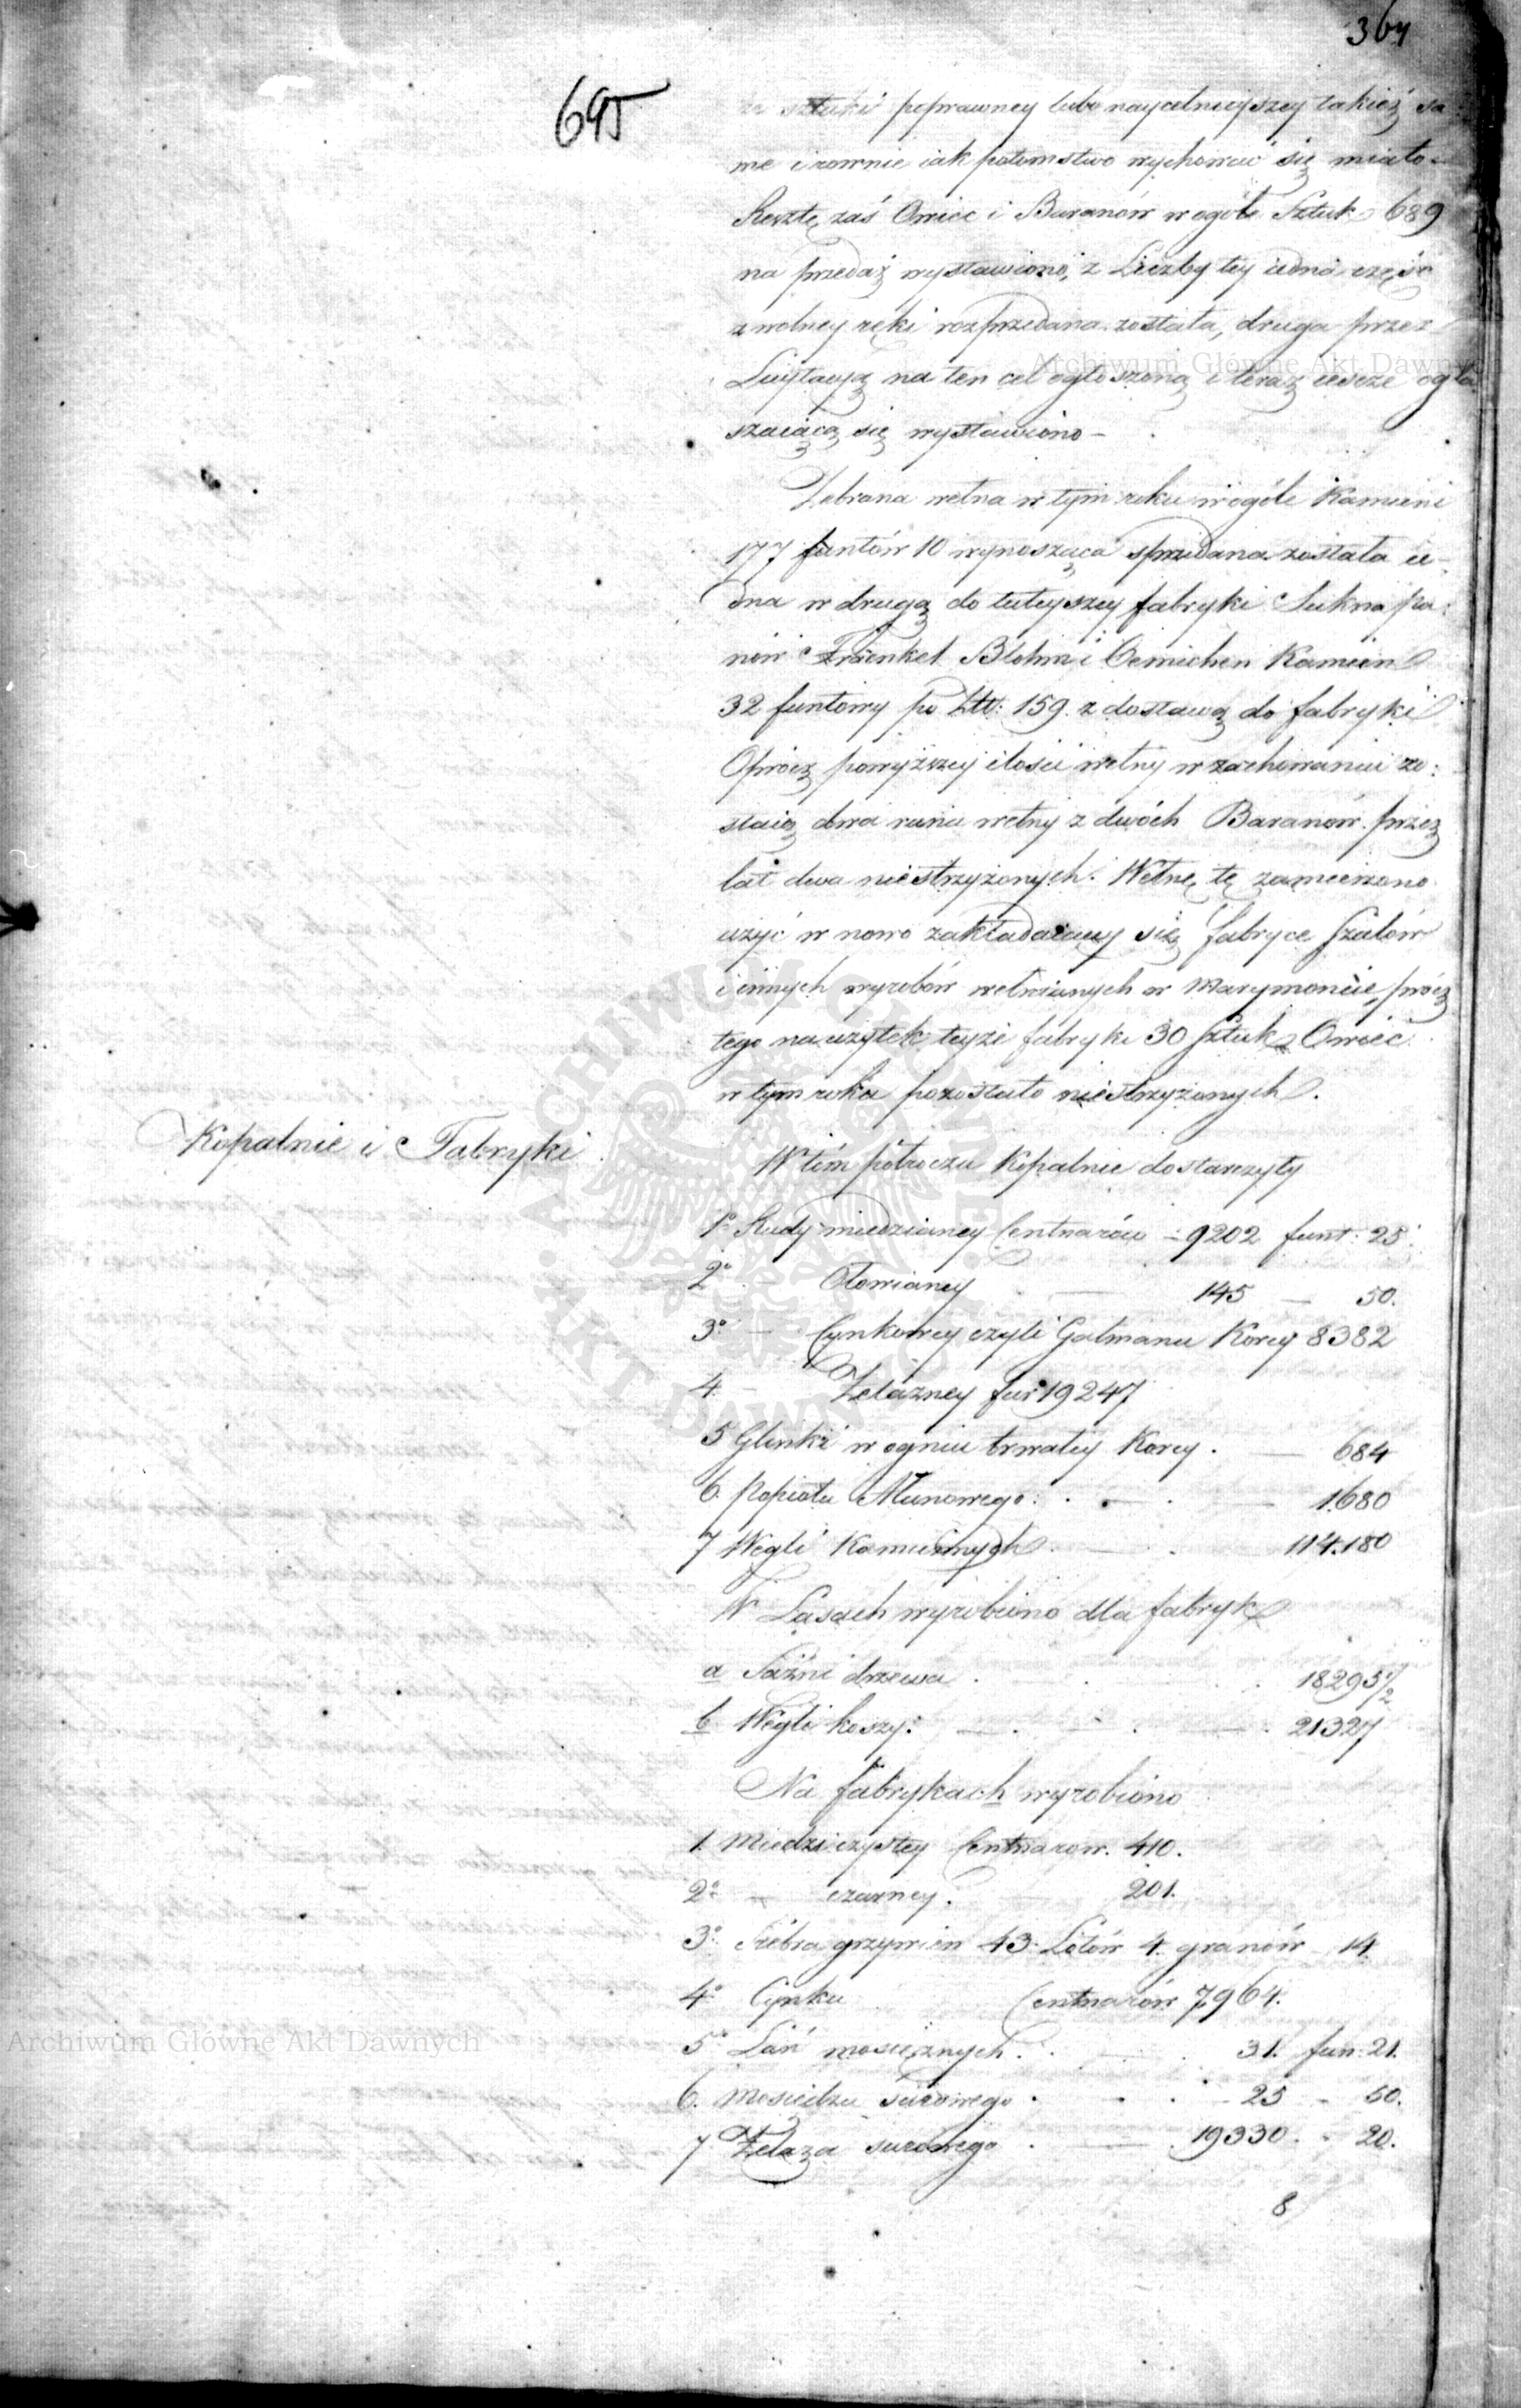 364
695
sztuki poprawney lubo naycelnieyszey takież sa
me i rownie iak potomstwo wychować się miało.
Resztę zaś Owiec i Baranów wogóle Sztuk 689
na przedaż wystawiono, z Liczby tey iedna część
z wolney ręki rozprzedana została, druga przez
Licytacyą na ten cel ogłoszoną i teraz ieszcze ogła
szaiącą się wystawiono –
Zebrana wełna w tym roku wogóle Kamieni
177 funtów 10 wynosząca sprzedana została ie-
dna w drugą do tuteyszey fabryki Sukna pa:
nów Fraenkel Blohm i Oemichen Kamień
32 funtowy po Złł: 159. z dostawą do fabryki
Oprócz powyższey ilości wełny w zachowaniu zo:
staią dwa runa wełny z dwóch Baranów przez
lat dwa niestrzyżonych. Wełnę tę zamierzono
użyć w nowo zakładaiącey się fabryce Szalów
i innych wyrobów wełnianych w Marymoncie, prócz
tego na użytek teyże fabryki 30 Sztuk Owiec
w tym roku pozostało niestrzyżonych.
Kopalnie i Fabryki
W tém półroczu Kopalnie dostarczyły
1º Rudy miedzianey Centnarów – 9202 funt: 25.
2º – Ołowianey – 145 – 50.
3º – Cynkowey czyli Galmanu Korcy 8382
4 – Żelazney fur 19247
5 Glinki w ogniu trwałey Korcy . – 684
6. Popiołu Ałunowego . . – . – 1680
7 Węgli Kamiennych . – . 114.180
W Lasach wyrobiono dla fabryk
a Sążni drzewa . 18295 1/2
b Węgli koszy: – . – . – . 21327
Na fabrykach wyrobiono
1. Miedzi czystey Centnarow. 410.
2º – czarney. 201.
3º Srébra grzywien 43 Łótów 4. granów – 14.
4º Cynku Centnarów 7,964.
5º Lań mosiężnych. . – . 31. fun: 21.
6. Mosiędzu surowego . . . – 25 – 60.
7 Żelaza surowego . – 19330. – 20.
8
Archiwum Główne Akt Dawnych
Archiwum Główne Akt Dawnych
ARCHIWUM GŁÓWNE AKT DAWNYCH